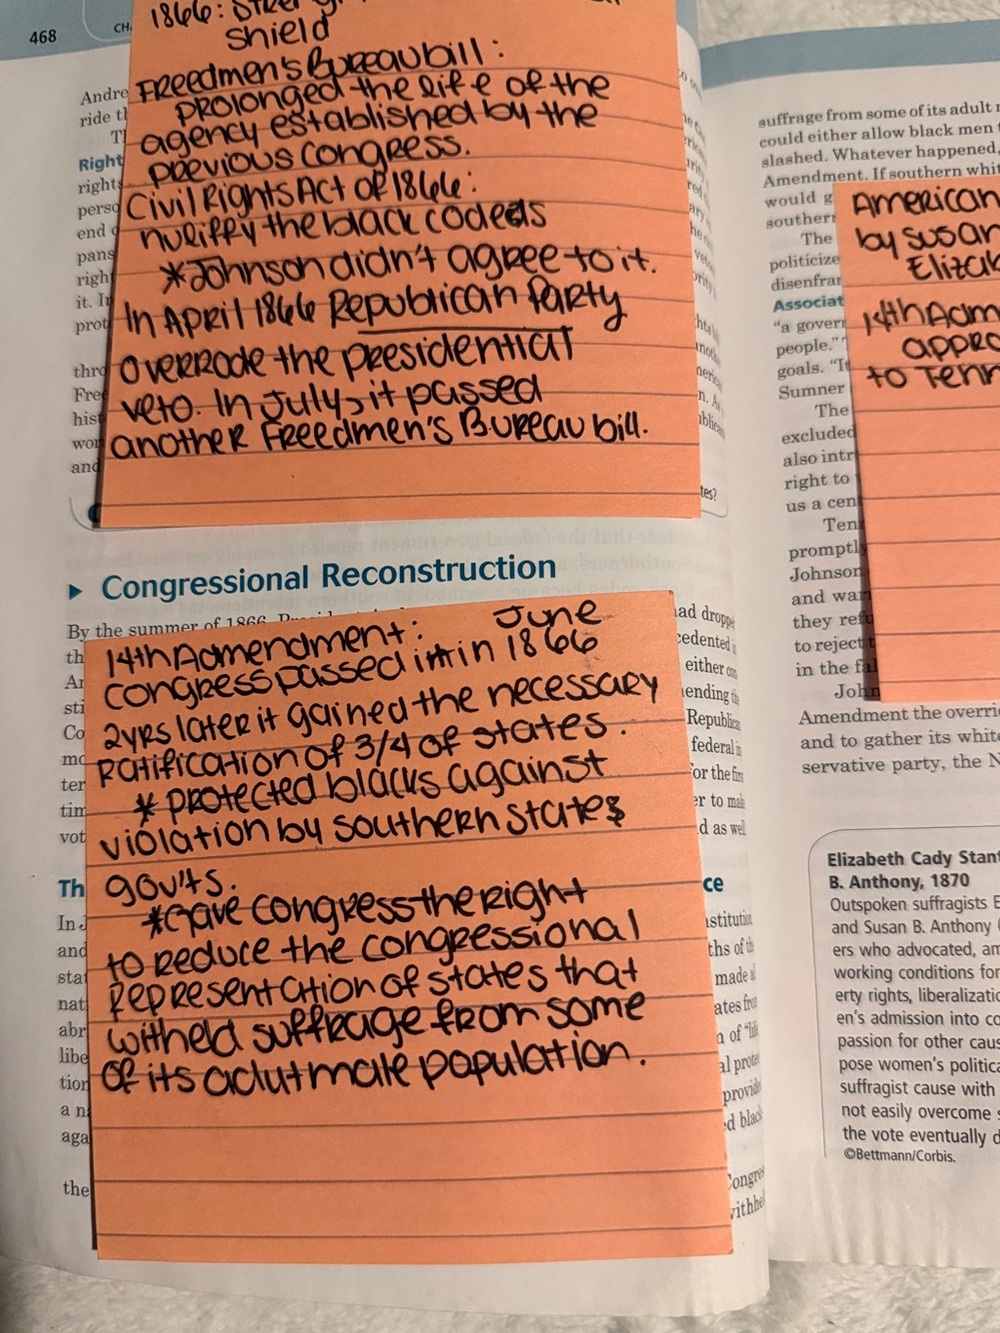 468
CH
1866:
Shield
Freedmen's Bureau bill:
prolonged the life of the
agency established by the
previous Congress.
Civil Rights Act of 1866:
nullify the black codes
*Johnson didn't agree to it.
In April 1866 Republican Party
overrode the presidential
veto. In July, it passed
another Freedmen's Bureau bill.
Andre
ride th
Right
rights
perso
end
pans
right
it. In
prot
thro
Free
hist
wor
and
tes?
Congressional Reconstruction
By the summer of 1866,
14th Admendment: June
Congress passed it in in 1866
2yrs later it gained the necessary
ratification of 3/4 of states.
* protected blacks against
violation by southern states
gov'ts.
*Gave Congress the right
to reduce the congressional
representation of states that
witheld suffrage from some
of its adlut male population.
th
Ar
sti
Co
mo
ter
tim
vot
Th
In J
and
stat
nat
abr
libe
tion
a na
aga
the
had droppe
cedented
either
ending
Republican
federal
for the firs
er to mak
d as well
ce
stitution
ths of th
made
ates from
n of "life
al prote
provide
d black
Congres
withhel
suffrage from some of its adult
could either allow black men
slashed. Whatever happened,
Amendment. If southern whit
would g
southern
The
politicize
disenfran
Associat
"a govern
people."
goals. "It
Sumner
The
excluded
also intr
right to
us a cen
Ten
promptly
Johnson
and war
they refu
to reject
in the fa
John
Amendment the overri
and to gather its white
servative party, the N
American
by Susan
Elizab
14th Adm
appro
to Tenn
Elizabeth Cady Stant
B. Anthony, 1870
Outspoken suffragists E
and Susan B. Anthony (
ers who advocated, am
working conditions for
erty rights, liberalizatio
en's admission into co
passion for other caus
pose women's politica
suffragist cause with
not easily overcome s
the vote eventually d
©Bettmann/Corbis.